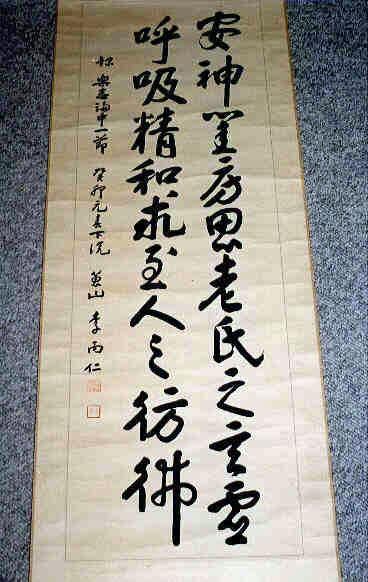 安神閨房思老氏之玄虛
呼吸精和求至人之彷彿
樂志論中一節 癸卯元春下浣 山 李丙仁